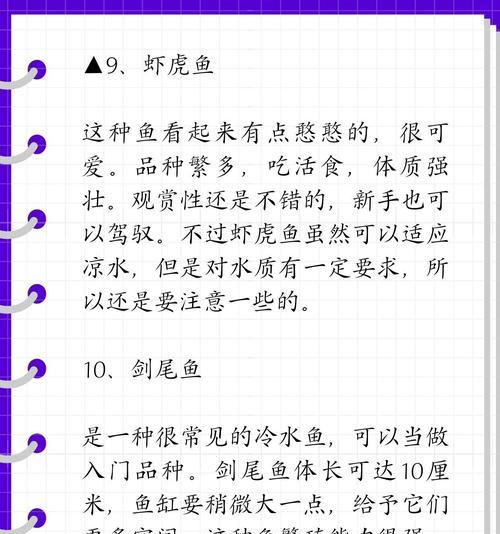 ▲9、虾虎鱼
这种鱼看起来有点憨憨的，很可
爱。品种繁多，吃活食，体质强
壮。观赏性还是不错的，新手也可
以驾驭。不过虾虎鱼虽然可以适应
凉水，但是对水质有一定要求，所
以还是要注意一些的。
10、剑尾鱼
是一种很常见的冷水鱼，可以当做
入门品种。剑尾鱼体长可达10厘
米，鱼缸要稍微大一点，给予它们
更多空间。这种鱼繁殖能力很强，